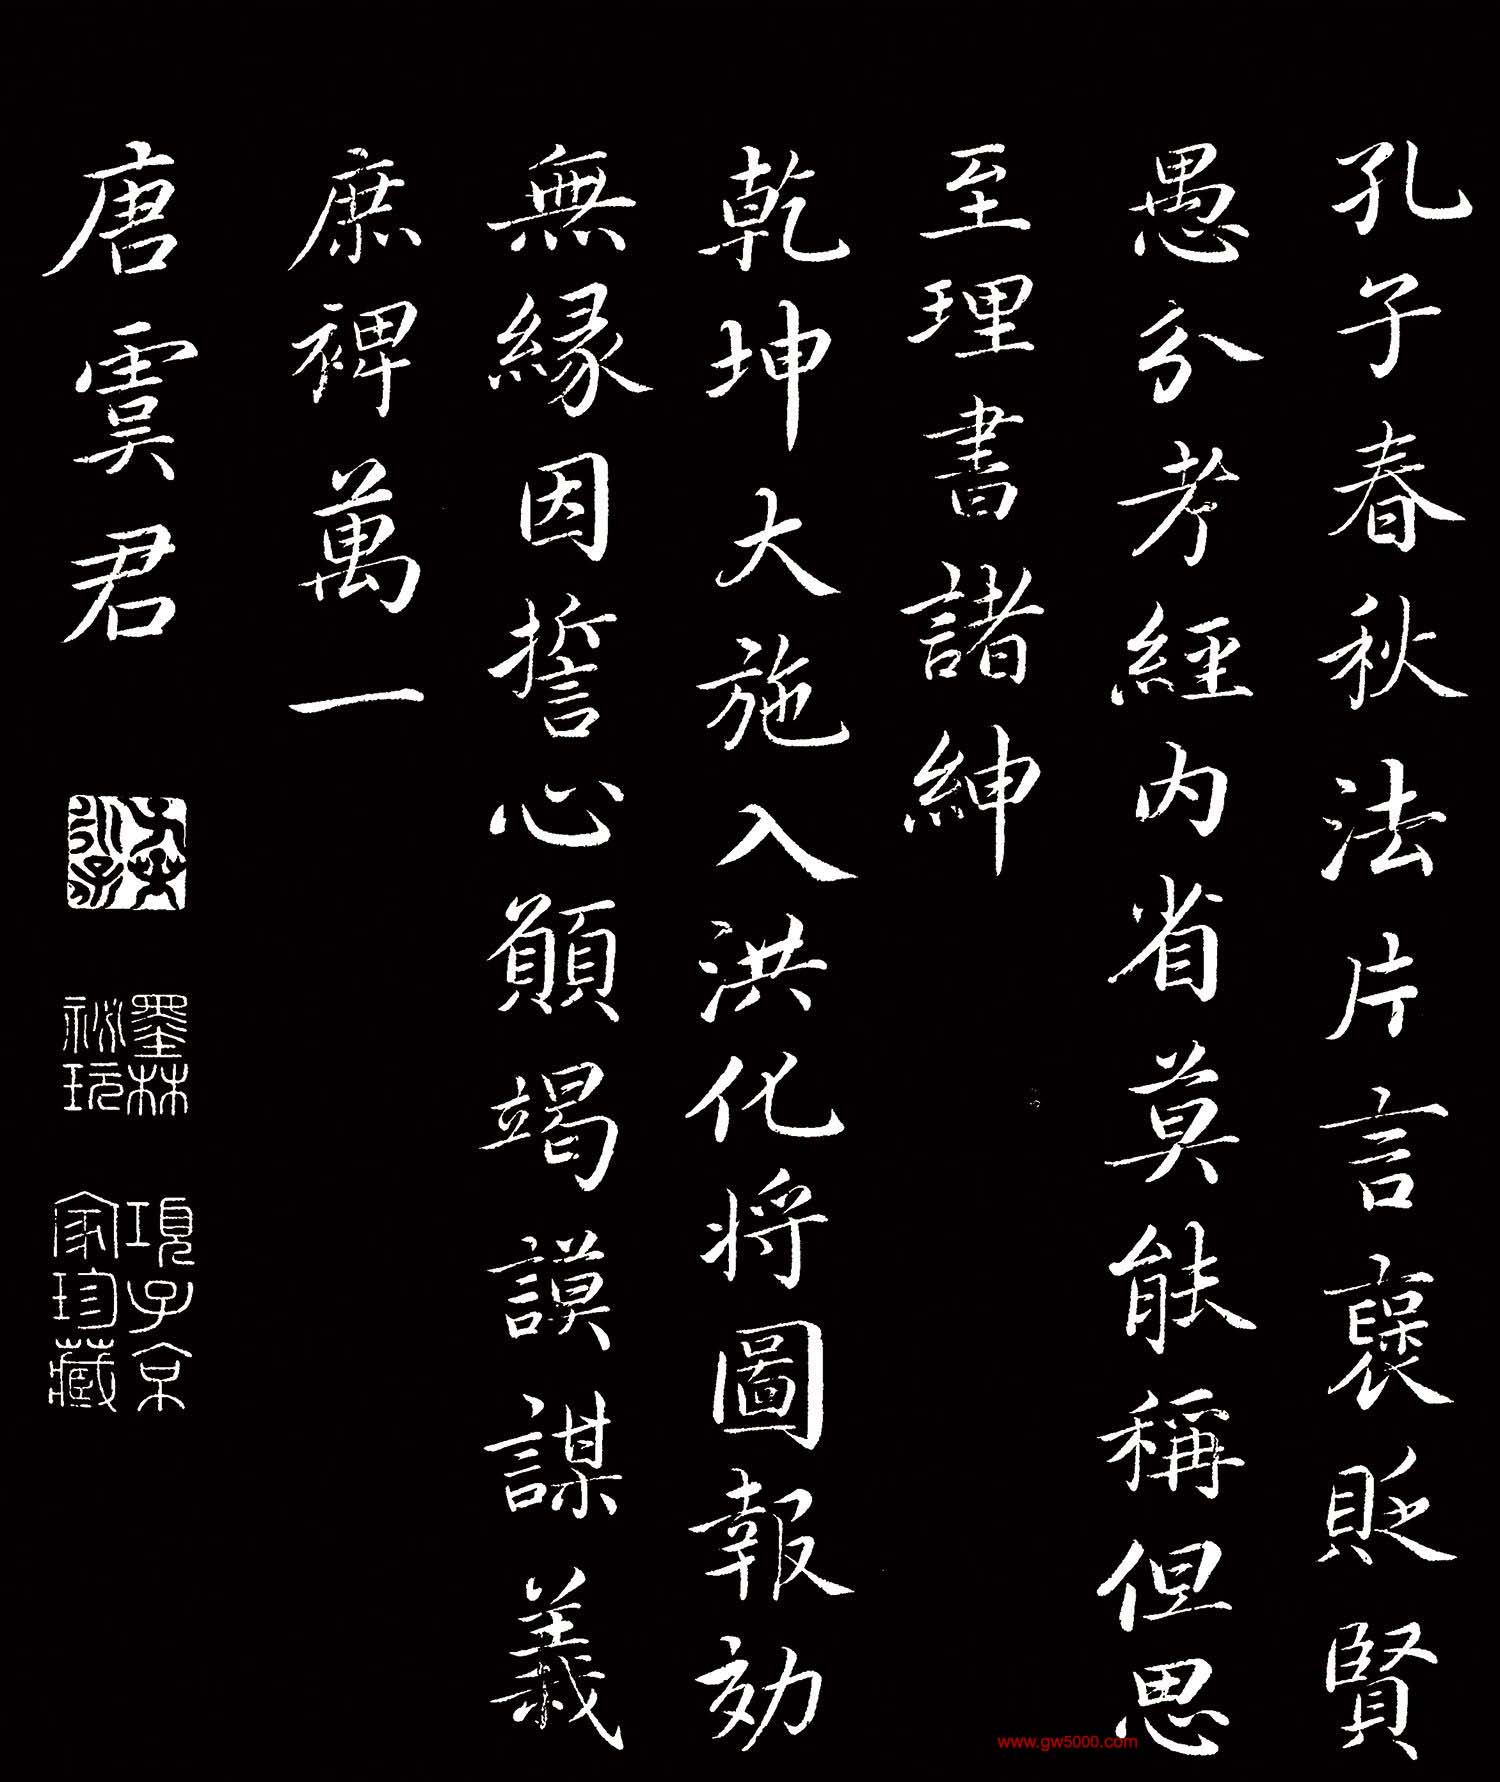 孔子春秋法片言褒貶賢
愚分考經内省莫能稱但思
至理書諸紳
乾坤大施入洪化將圖報効
無緣因誓心願竭謨謀義
庶裨萬一
唐虞君
墨林祕玩
項子京家珍藏
www.gw5000.com